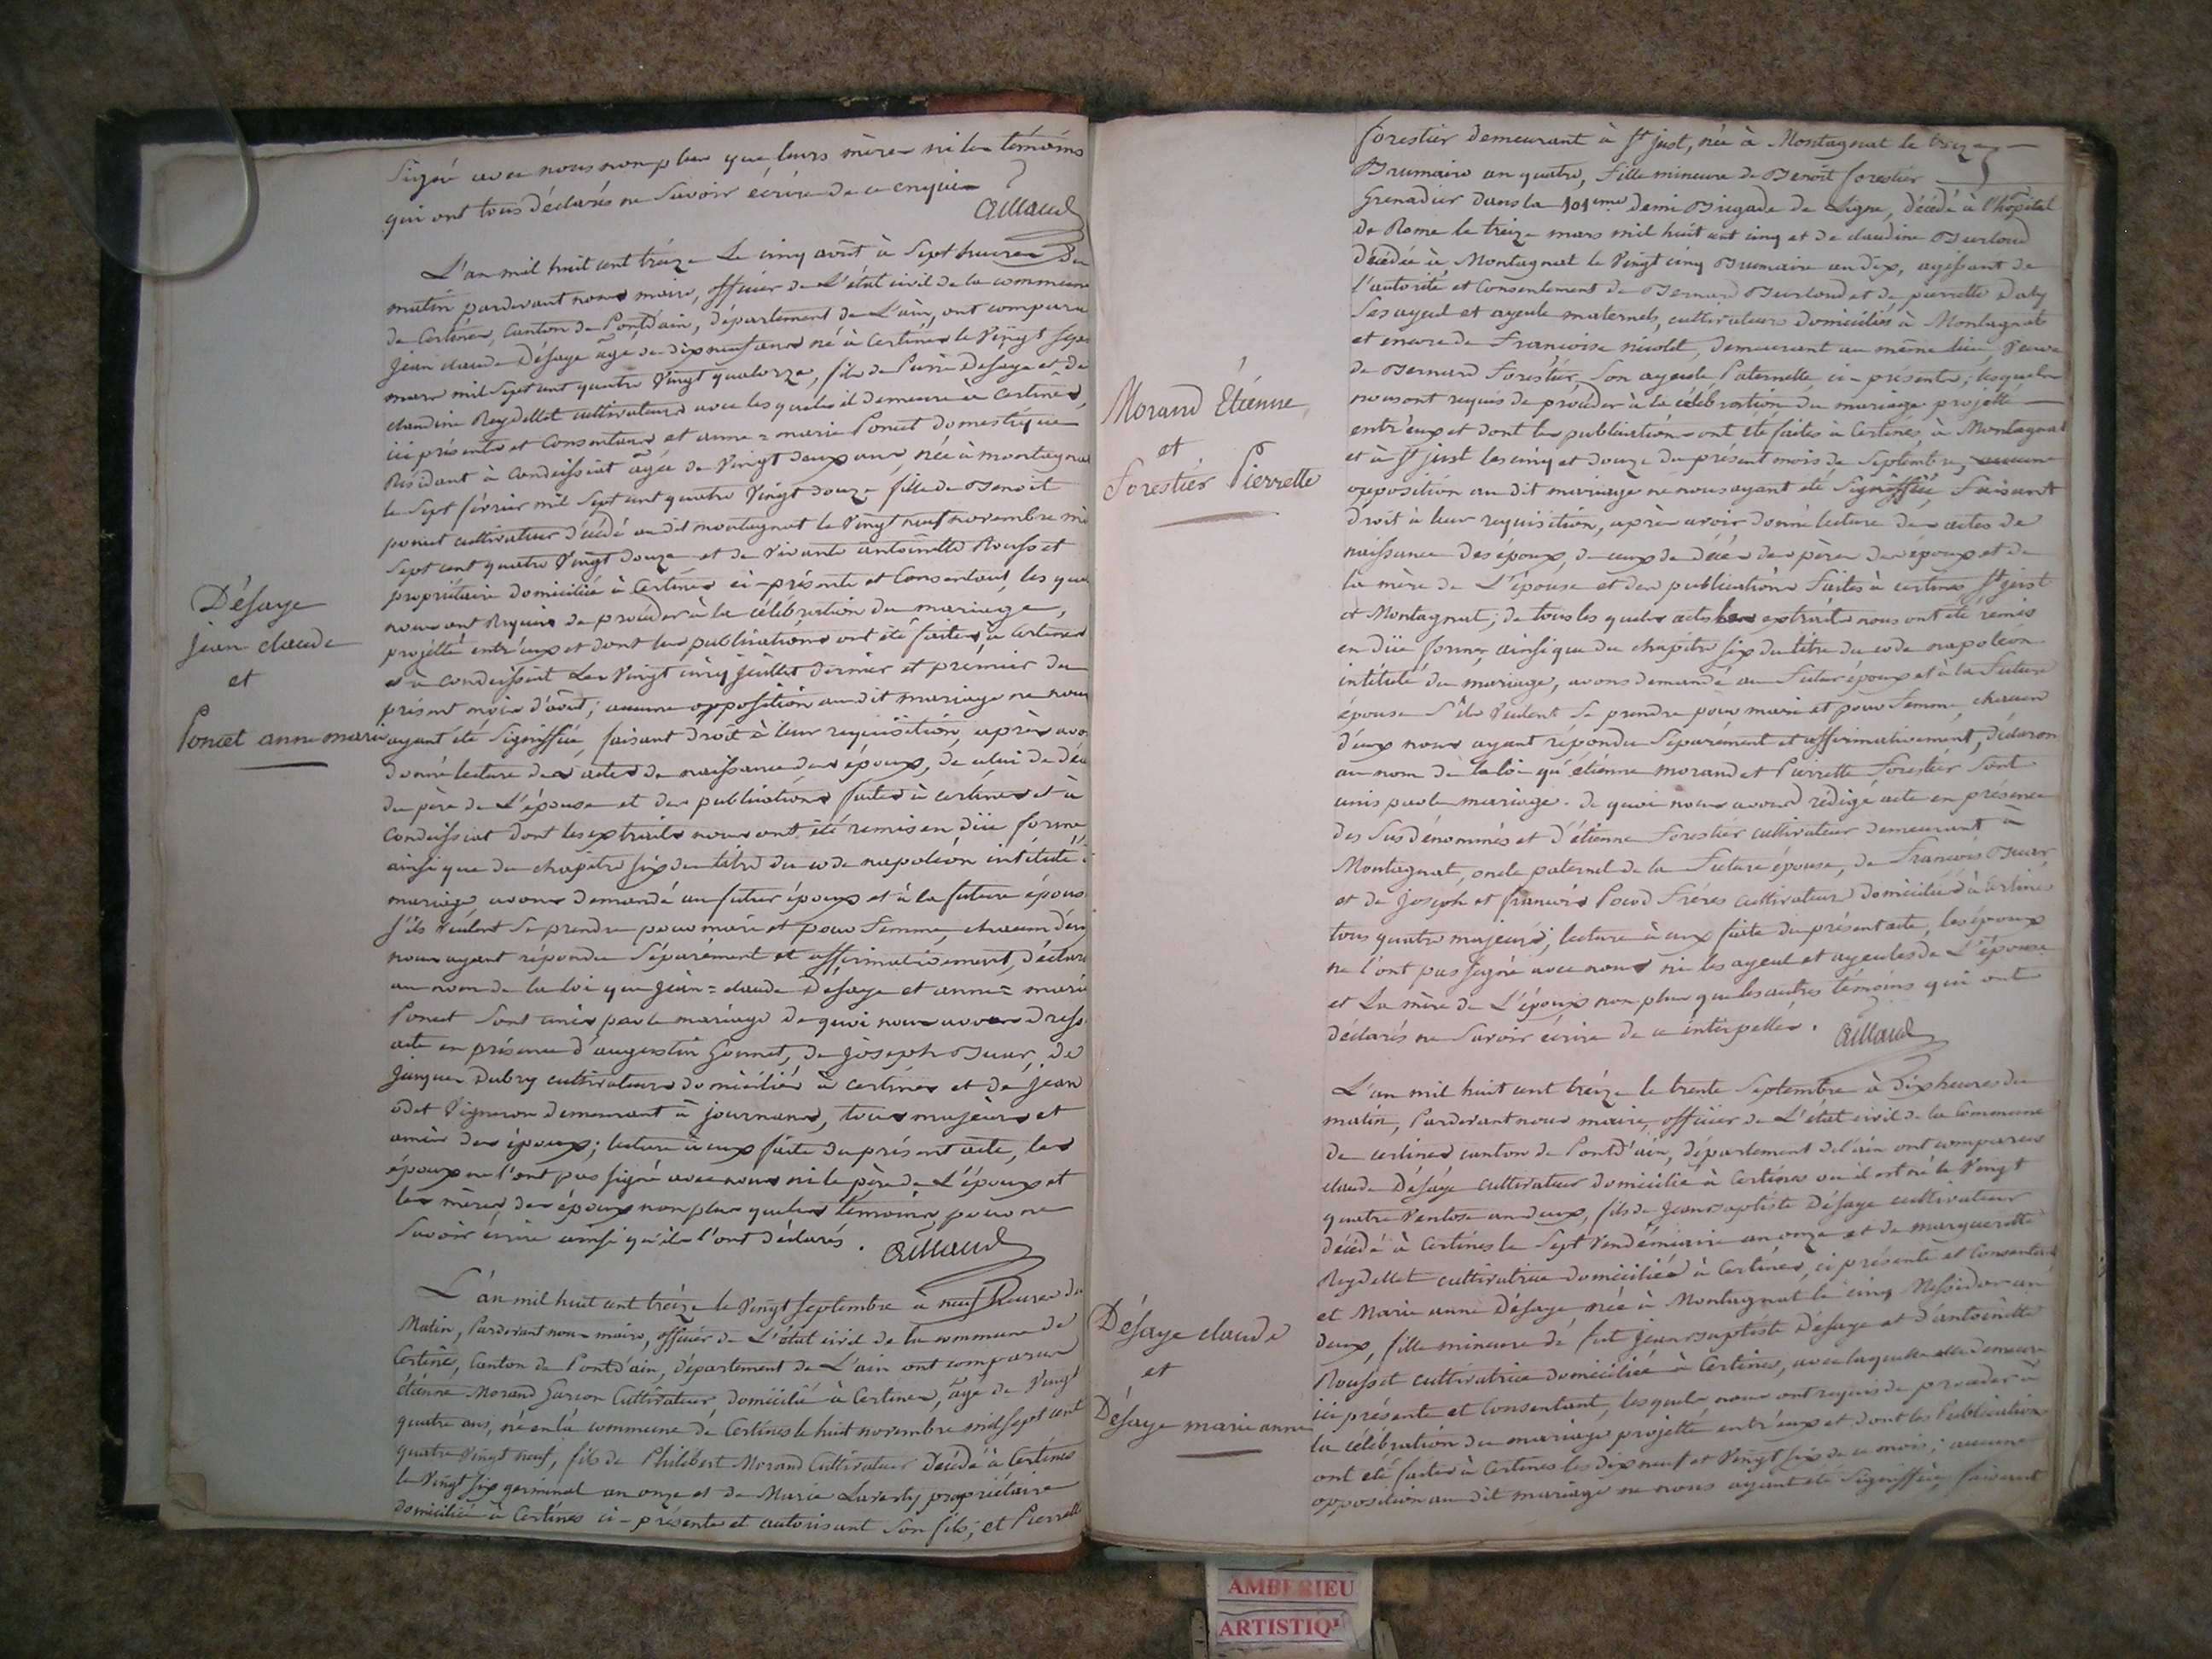 Signé avec nous non plus que leurs mères ni les témoins
qui ont tous déclarés ne Savoir écrire de ce enquis
Aillaud
L'an mil huit cent treize Le cinq août à Sept heures du
matin pardevant nous maire, officier de L'état civil de la commune
de Certines, Canton de Pontdain, département de L'ain, ont comparu
Jean claude Désaye âgé de dix neuf ans né à Certines le Vingt Sept
mars mil Sept cent quatre Vingt quatorze, fils de Pierre Desaye et de
claudine Reydellet cultivateurs avec lesquels il demeure à Certines,
ici présents et Consentans et anne=marie Poncet domestique
Résidant à Condeissiat âgée de Vingt deux ans, née à montagnat
le Sept février mil Sept cent quatre Vingt douze fille de Benoit
poncet cultivateur décédé au dit montagnat le Vingt neuf novembre mil
Sept cent quatre Vingt douze et de Vivante antoinette Rousset
propriétaire domiciliée à Certines ci-présente et Consentant, les quels
nous ont Requis de procéder à la célébration du mariage,
projetté entr'eux et dont les publications ont été faites à Certines
et à Condeissiat Les Vingt cinq juillet dernier et premier du
présent mois d'août; aucune opposition au dit mariage ne nous
ayant été Signiffiée, faisant droit à leur requisition, après avoir
donné lecture des actes de naissance des époux, de celui de décès
du père de L'épouse et des publications faites à certines et à
Condeissiat dont les extraits nous ont été remis en düe forme
ainsi que du chapitre six du titre du code napoléon intitulé du
mariage, avons demandé au futur époux et à la future épouse
S'ils Veulent Se prendre pour mari et pour Femme, chacun d'eux
nous ayant répondu Séparément et affirmativement, déclarons
au nom de la loi que Jean=claude Désaye et anne=marie
Poncet Sont unis par le mariage de quoi nous avons dressé
acte en présence d'augustin Gounet, de Joseph Buar, de
Jacques Dubry cultivateurs domiciliés à certines et de jean
odet Vigneron demeurant à journans, tous majeurs et
amis des époux; lecture à eux faite du présent acte, les
époux ne l'ont pas signé avec nous ni le père de L'époux et
les mères des époux non plus que les témoins pour ne
Savoir écrire ainsi qu'ils l'ont déclarés.
Aillaud
L'an mil huit cent treize le Vingt septembre à neuf heures du
Matin, Pardevant nous maire, officier de L'état civil de la commune de
Certines, Canton de Pontd'ain, département de L'ain ont comparus
étienne Morand Garçon Cultivateur, domicilié à Certines, âgé de Vingt
quatre ans, né en la commune de Certines le huit novembre mil sept cent
quatre Vingt neuf, fils de Philibert Morand Cultivateur décédé à Certines
le Vingt six germinal an onze et de Marie Laverly propriétaire
domiciliée à Certines ci-présente et autorisant Son fils; et Pierrette
Désaye
jean claude
et
Poncet anne marie
forestier demeurant à St just, née à Montagnat le treize
Brumaire an quatre, fille mineure de Benoit forestier
Grenadier dans la 101eme demi Brigade de Ligne, décédé à l'hôpital
de Rome le treize mars mil huit cent cinq et de claudine Burloud
décédée à Montagnat le Vingt cinq Brumaire an dix, agissant de
l'autorité et Consentement de Bernard Burloud et de pierrette Daly
Ses ayeul et ayeule maternels, cultivateurs domiciliés à Montagnat
et encore de Francoise nicolet, demeurant au même lieu, Veuve
de Bernard Forestier, Son ayeule Paternelle, ci-présente; lesquels
nous ont requis de procéder à la célébration du mariage projetté
entr'eux et dont les publications ont été faites à Certines, à Montagnat
et à St just les cinq et douze du présent mois de Septembre, aucune
opposition au dit mariage ne nous ayant été Signiffiée, Faisant
droit à leur requisition, après avoir donné lecture des actes de
naissance des époux, de ceux de décès des pères des époux et de
la mère de L'épouse et des publications Faites à certines St just
et Montagnat; de tous les quels actes les extraits nous ont été remis
en düe forme, ainsi que du chapitre six du titre du code napoléon
intitulé du mariage, avons demandé au Futur époux et à la Future
épouse S'ils Veulent Se prendre pour mari et pour Femme, chacun
d'eux nous ayant répondu Séparément et affirmativement, déclarons
au nom de la loi qu'étienne morand et Pierrette Forestier Sont
unis par le mariage. de quoi nous avons rédigé acte en présence
des Susdénommés et d'étienne Forestier cultivateur demeurant à
Montagnat, oncle paternel de la Future épouse, de François Buar
et de Joseph et François Pocod Frères cultivateurs domiciliés à Certines
tous quatre majeurs; lecture à eux faite du présent acte, les époux
ne l'ont pas signé avec nous ni les ayeul et ayeules de L'épouse
et La mère de L'époux non plus que les autres témoins qui ont
déclarés ne Savoir écrire de ce interpellés.
Aillaud
L'an mil huit cent treize le trente Septembre à dix heures du
matin, Pardevant nous maire, officier de L'état civil de la Commune
de certines canton de Pontd'ain, département de l'ain ont comparus
claude Désaye cultivateur domicilié à Certines où il est né le Vingt
quatre Ventose an deux, fils de Jean baptiste Désaye cultivateur
décédé à Certines le Sept Vendémiaire an onze et de marguerite
Reydellet cultivatrice domiciliée à Certines, ci présente et Consentant
et Marie anne Désaye née à Montagnat le cinq Messidor an
deux, fille mineure de feu Jean baptiste Désaye et d'antoinette
Rousset cultivatrice domiciliée à Certines, avec laquelle elle demeure
ici présente et Consentant, lesquels nous ont requis de procéder à
la célébration du mariage projetté entr'eux et dont les Publications
ont été faites à Certines les dix neuf et Vingt six de ce mois; aucune
opposition au dit mariage ne nous ayant été Signiffiée, faisant
Morand Etienne
et
Forestier Pierrette
Désaye claude
et
Désaye marie anne
AMBERIEU
ARTISTIQ